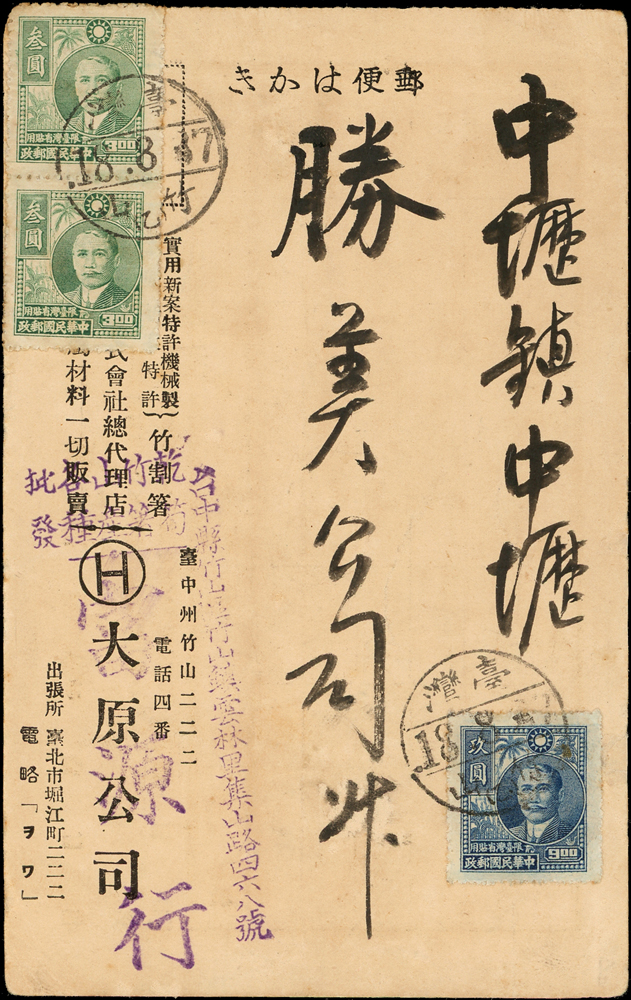 郵便はかき
中壢鎮中壢
勝美公司
叁圓
限臺灣省貼用
3.00
中華民國郵政
叁圓
限臺灣省貼用
3.00
中華民國郵政
臺灣
竹山
實用新案特許機械製
特許
竹割箸
式會社總代理店
材料一切販賣
H 大原公司
臺中州竹山二二二
電話四番
出張所 臺北市堀江町二二二
電略「ヲワ」
台中縣竹山區竹山鎮雲林里集山路四六八號
源行
臺灣
玖圓
限臺灣省貼用
9.00
中華民國郵政